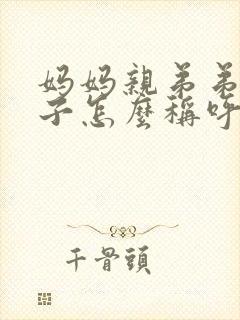 妈妈親弟弟
子怎麼稱呼
千骨頭